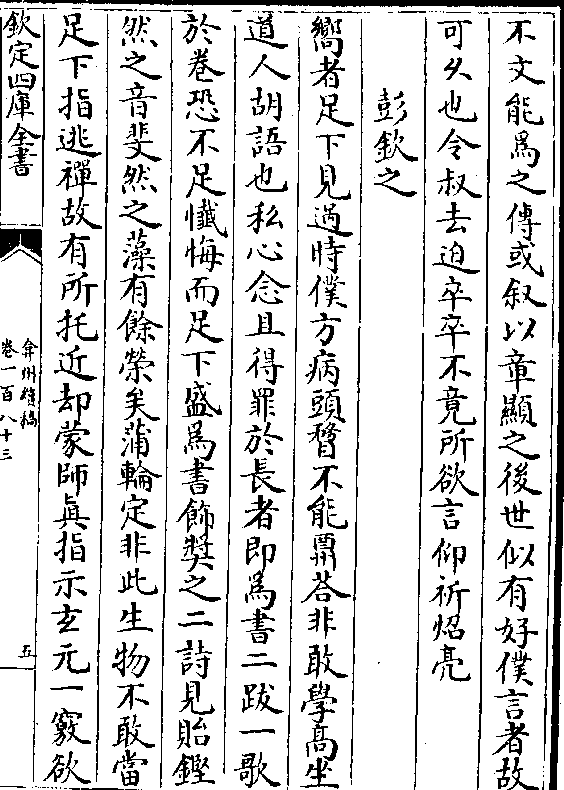 不文能爲之傳或叙以章顯之後世似有好僕言者故
可久也令叔去迫卒卒不竟所欲言仰祈炤亮
彭欽之
嚮者足下見過時僕方病頭瞀不能酬荅非敢學髙坐
道人胡語也私心念且得罪於長者即爲書二跋一歌
於卷恐不足懺悔而足下盛爲書飾奬之二詩見貽鏗
然之音斐然之藻有餘榮矣蒲輪定非此生物不敢當
足下指逃禪故有所托近却蒙師眞指示玄元一竅欲
欽定四庫全書
弇州續稿
卷一百八十三
五